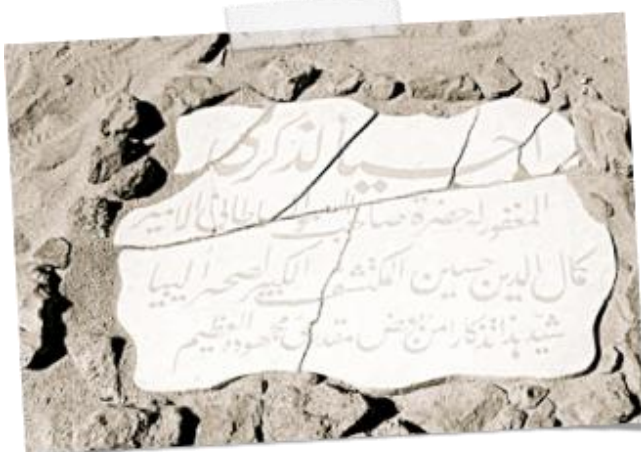 احياء لذكرى
المغفور له حضرة صاحب السمو السلطاني الامير
كمال الدين حسين المكتشف الكبير لصحراء ليبيا
شيد هذا تذكارا من بعض مقدري مجهوده العظيم